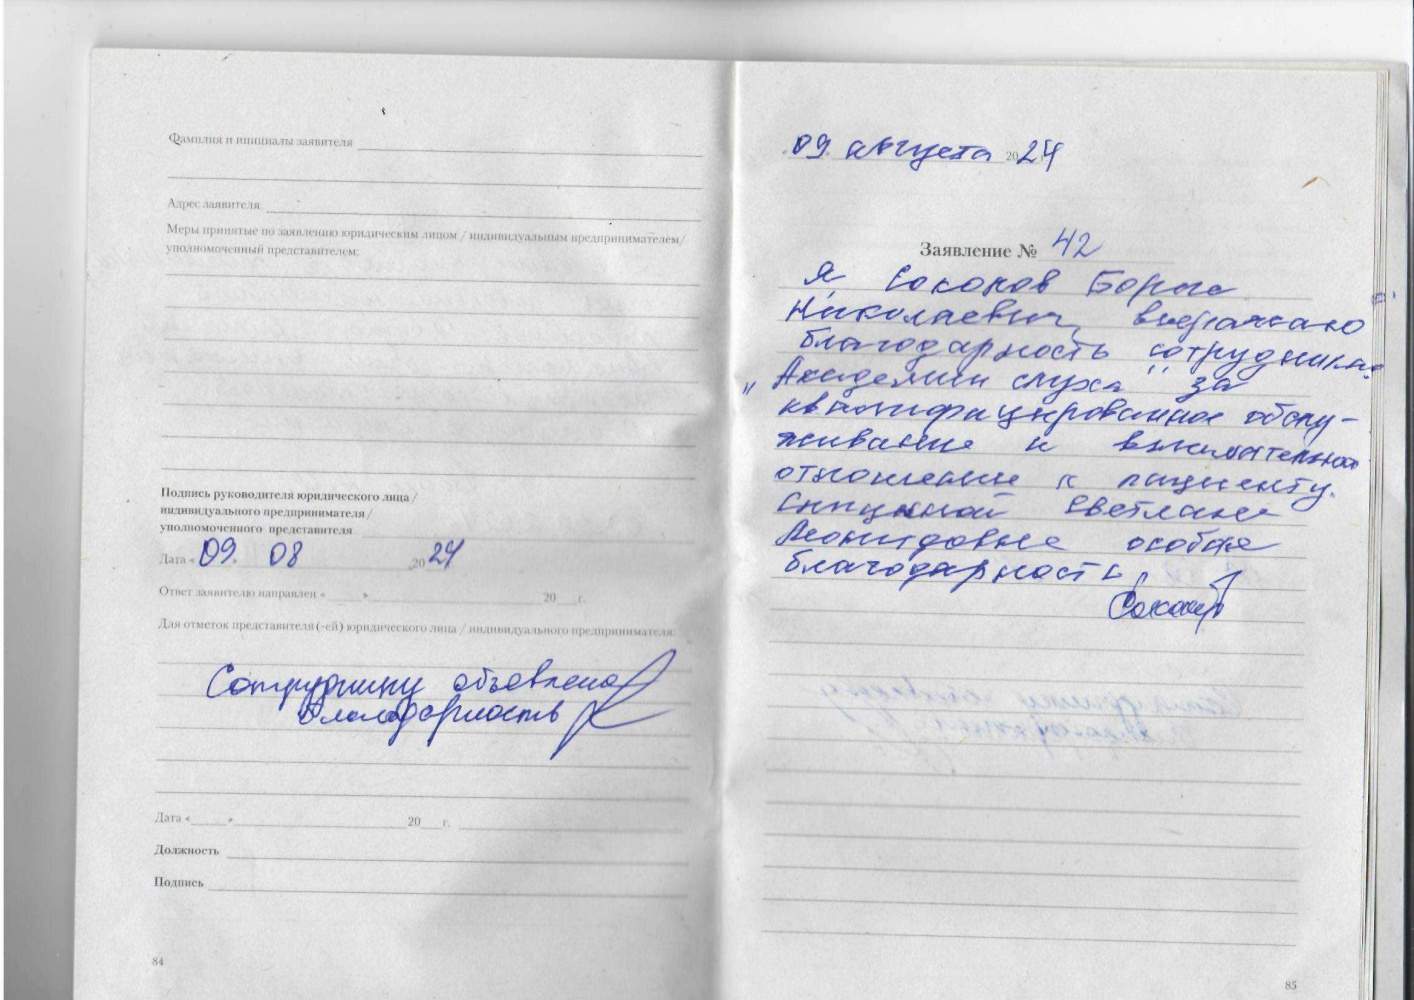 Фамилия и инициалы заявителя
Адрес заявителя
Меры принятые по заявлению юридическим лицом / индивидуальным предпринимателем/
уполномоченный представителем:
Подпись руководителя юридического лица /
индивидуального предпринимателя /
уполномоченного представителя
Дата « 09. 08 20 24
Ответ заявителю направлен « » 20 г.
Для отметок представителя (-ей) юридического лица / индивидуального предпринимателя:
Сотруднику объявлена
благодарность
Дата « » 20 г.
Должность
Подпись
84
09. августа 20 24
Заявление № 42
Я Соколов Борис
Николаевич, выражаю
благодарность сотрудникам
"Академии слуха" за
квалифицированное обслу-
живание и внимательное
отношение к пациенту.
Светлане
Леонидовне особая
благодарность.
85